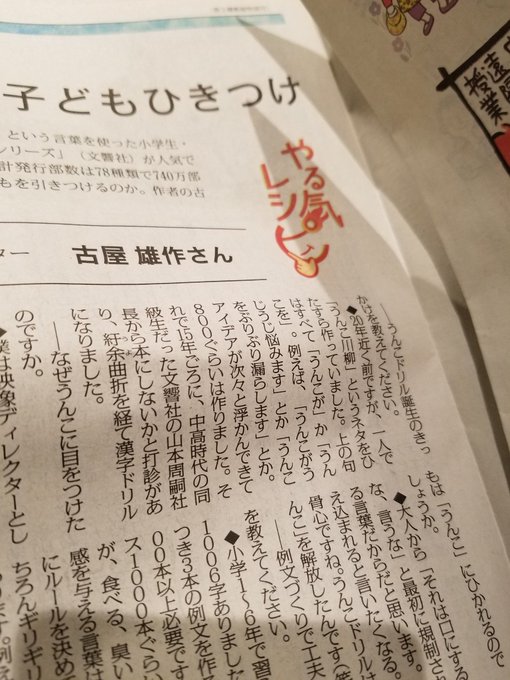 子どもひきつけ
という言葉を使った小学生・
シリーズ」(文響社)が人気で
計発行部数は78種類で740万部
もを引きつけるのか。作者の古
ター 古屋 雄作さん
やる気
レシピ
授業
――うんこドリル誕生のきっ
かけを教えてください。
◆20年近く前ですが、一人で
「うんこ川柳」というネタをひ
たすら作っていました。上の句
はすべて「うんこが」か「うん
こを」。例えば、「うんこがう
じうじ悩みます」とか「うんこ
をぶりぶり漏らします」とか。
アイデアが次々と浮かんできて
800ぐらいは作りました。そ
れで15年ごろに、中高時代の同
級生だった文響社の山本周嗣社
長から本にしないかと打診があ
り、紆余曲折を経て漢字ドリル
になりました。
――なぜうんこに目をつけた
のですか。
◆僕は映像ディレクターとし
もは「うんこ」にひかれるので
しょうか。
◆大人から「それは口にする
な、言うな」と最初に規制され
る言葉だからだと思います。
え込まれると言いたくなる。
骨心ですね。うんこドリルは
んこを解放したんです(笑
――例文づくりで工夫
を教えてください。
◆小学1～6年で習
1006字ありました
つき3本の例文を作る
00本以上必要です
ス1000本ぐらい
が、食べる、臭い
感を与える言葉は
にルールを決めて
ちろんギリギリ